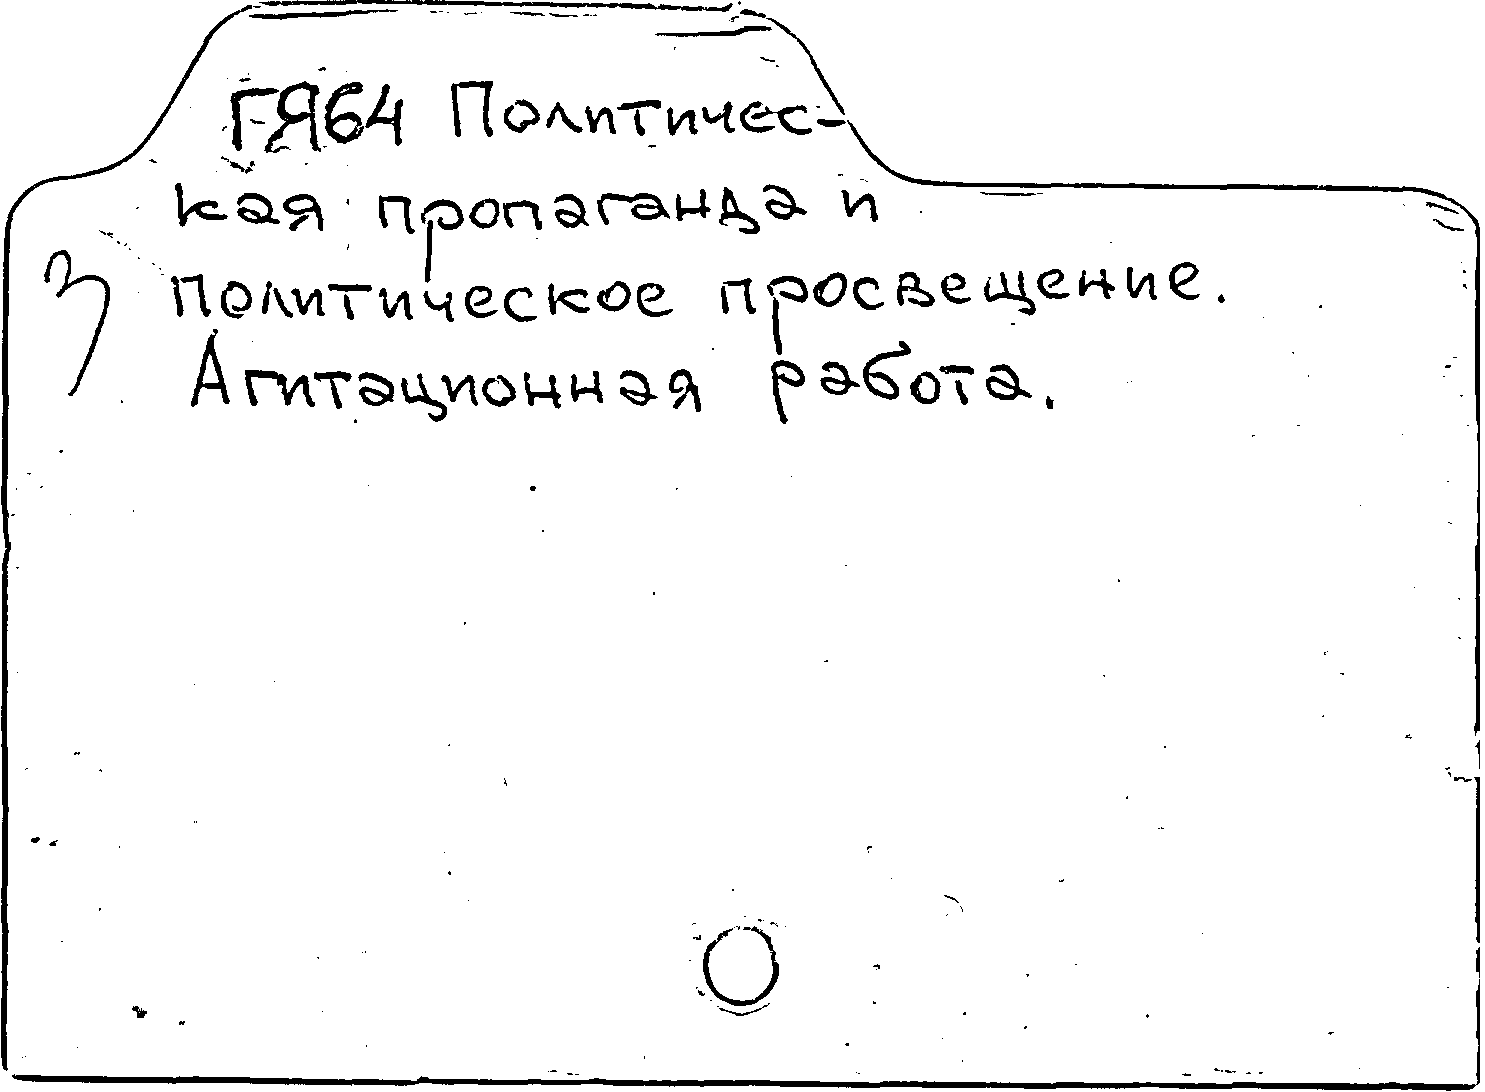 ГЯ64 Политичес-
кая пропаганда и
З политическое просвещение.
Агитационная работа.